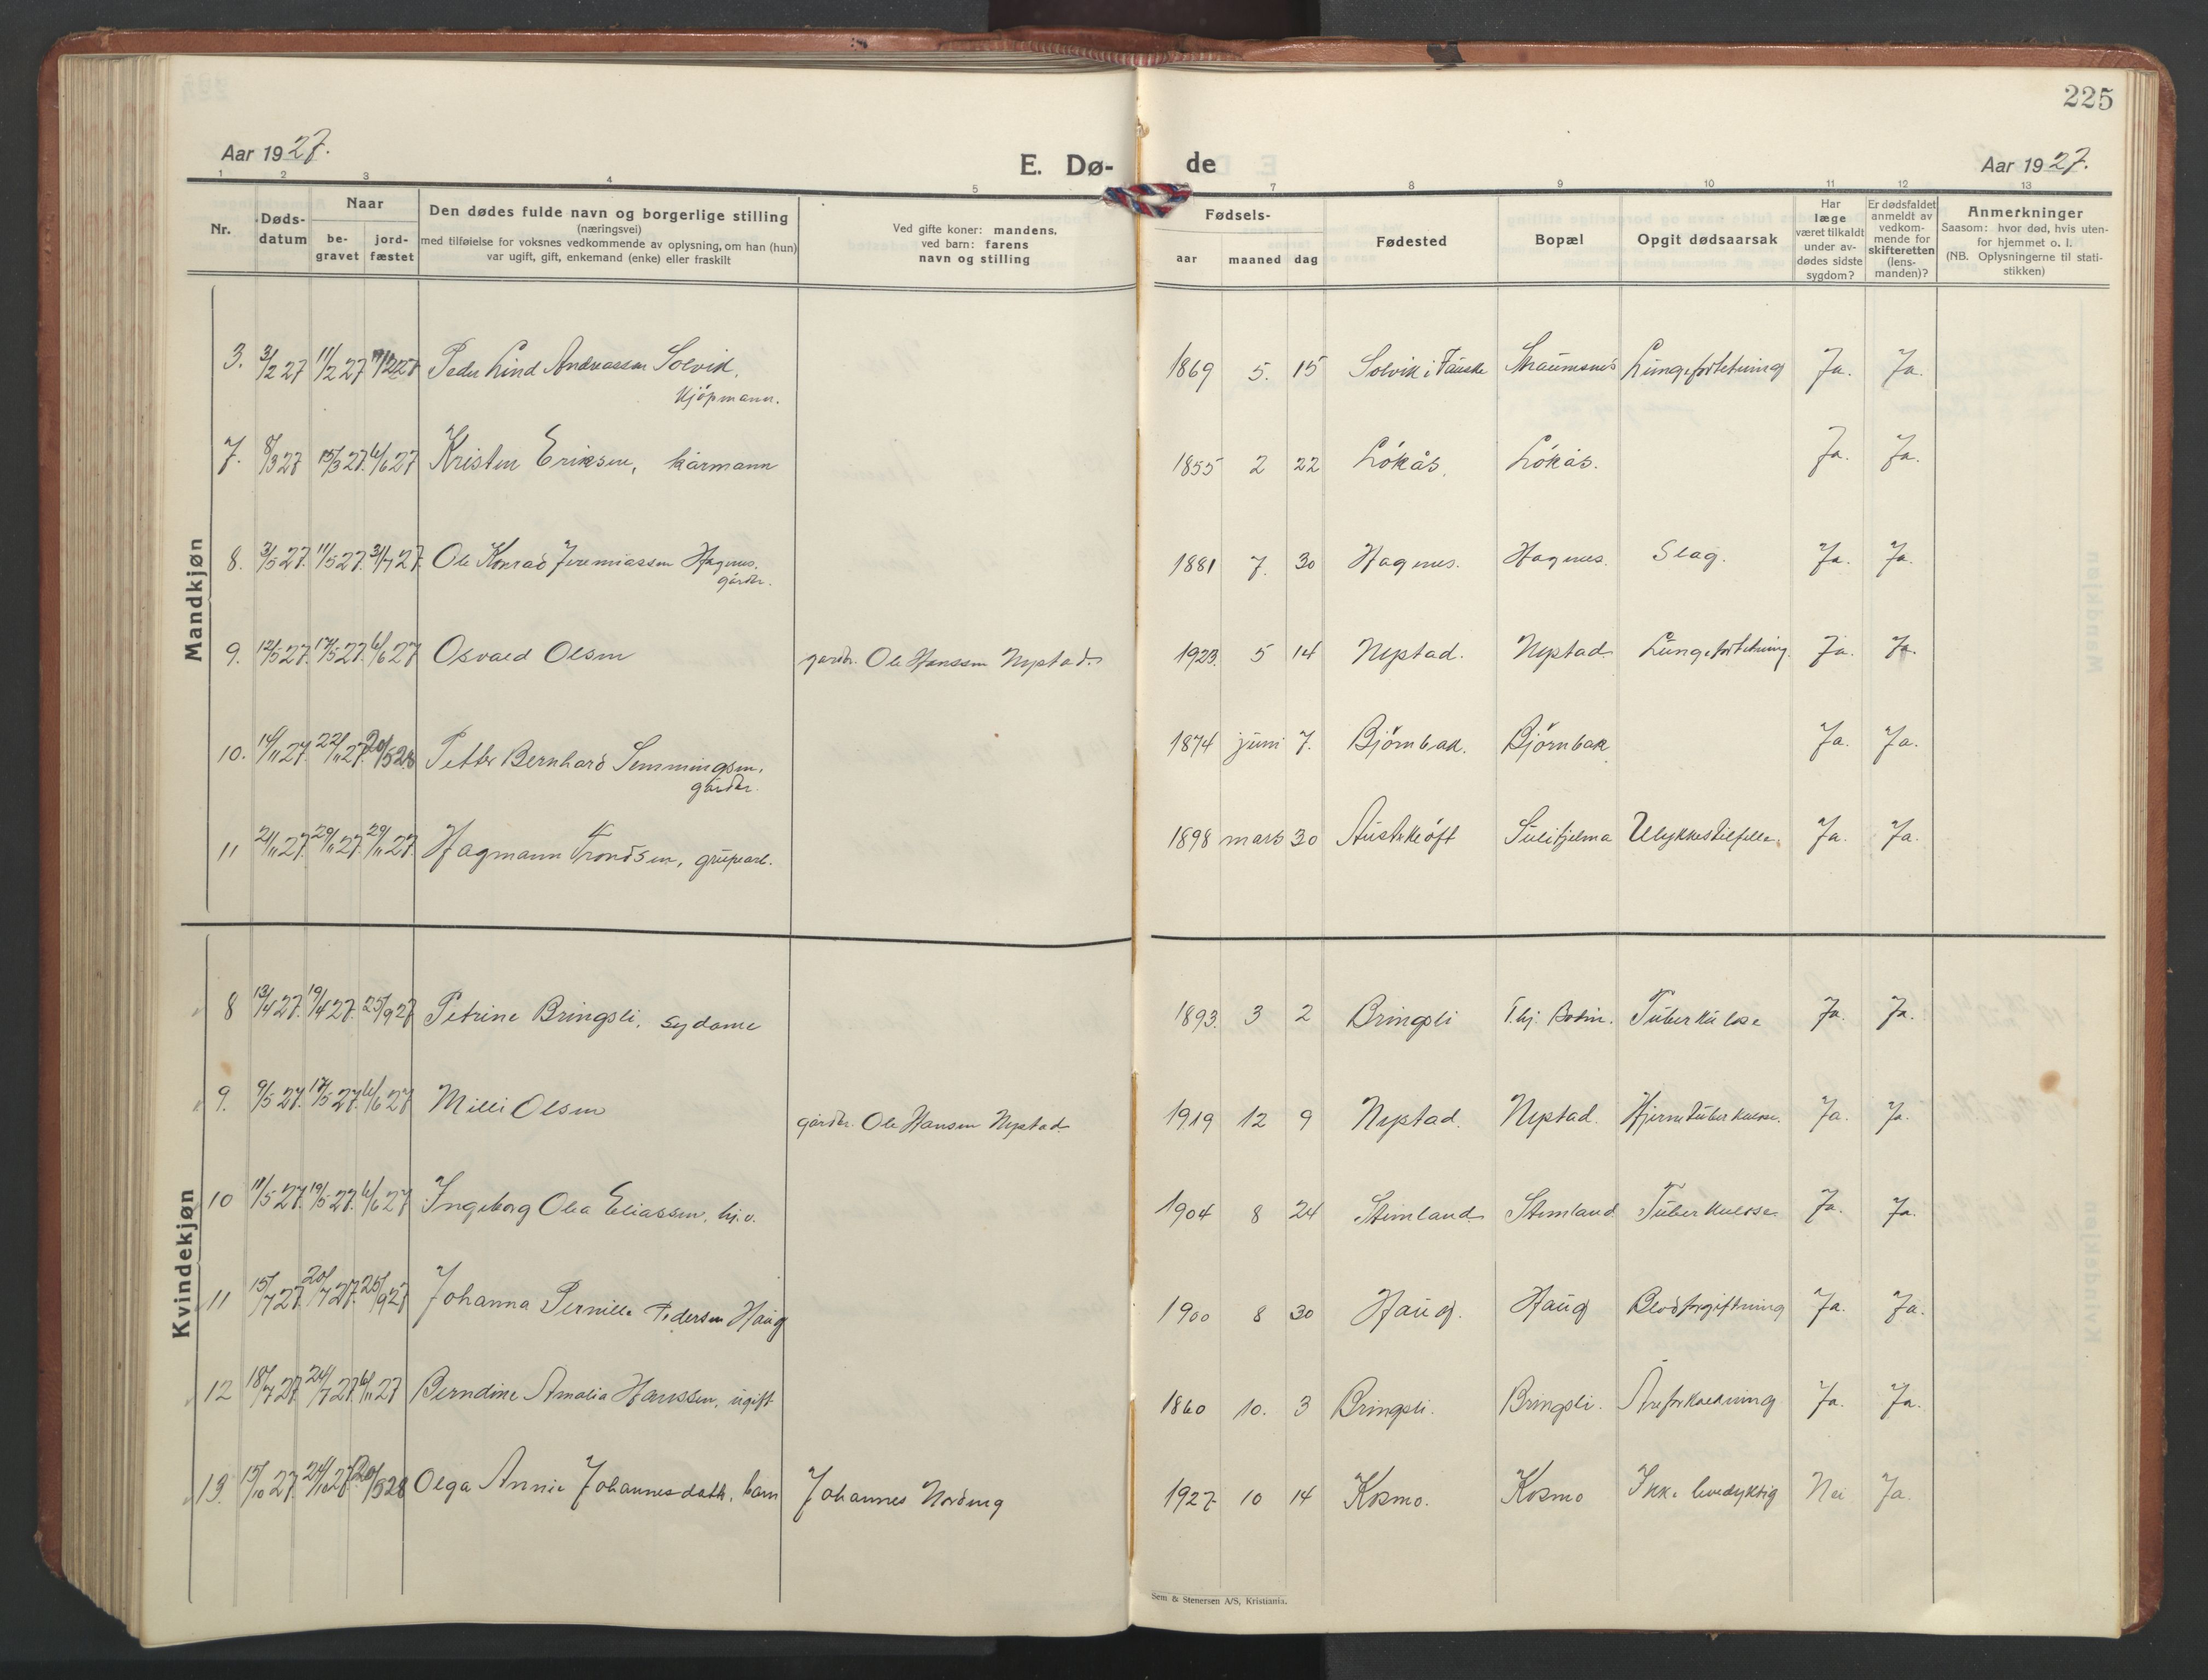 225
Aar 1927.
E. Dø-
de
Aar 1927.
1 2 3 4 5 7 8 9 10 11 12 13
Nr.
Døds-
datum
Naar
be-
gravet
jord-
fæstet
Den dødes fulde navn og borgerlige stilling
(næringsvei)
med tilføielse for voksnes vedkommende av oplysning, om han (hun)
var ugift, gift, enkemand (enke) eller fraskilt
Ved gifte koner: mandens,
ved barn: farens
navn og stilling
Fødsels-
aar maaned dag
Fødested
Bopæl
Opgit dødsaarsak
Har
læge
været tilkaldt
under av-
dødes sidste
sygdom?
Er dødsfaldet
anmeldt av
vedkom-
mende for
skifteretten
(lens-
manden)?
Anmerkninger
Saasom: hvor død, hvis uten-
for hjemmet o. l.
(NB. Oplysningerne til stati-
stikken)
Mandkjøn
3. 3/2 27 11/2 27 Peder Lind Andreassen Solvik, 1869 5. 15 Solvik i Fauske Straumsnes Lungefortetning Ja. Ja.
kjøpmann.
7. 8/3 27 15/3 27. 6/6 27 Kristen Eriksen, kårmann 1855 2 22 Løkås. Løkås. Ja. Ja.
8. 3/5 27. 11/5 27. 31/7 27. Ole Konrad Jeremiassen Hagnes, 1881 7. 30 Hagnes. Hagnes. Slag. Ja. Ja.
gårdbr.
9. 12/5 27. 17/5 27. 6/6 27 Osvald Olsen gårdbr. Ole Hanssen Nystad. 1923. 5 14 Nystad. Nystad. Lungefortetning. Ja. Ja.
10. 14/11 27. 22/11 27. 20/5 28 Petter Bernhard Semmingsen, 1874 juni 7. Bjørnbak. Bjørnbak Ja. Ja.
gårdbr.
11 21/11 27. 29/11 27. 29/11 27. Hagmann Trondsen, grupearb. 1898 mars 30 Austkløft Sulitjelma Ulykkestilfelle. Ja. Ja.
Kvindekjøn
8 13/4 27. 19/4 27. 25/9 27 Petrine Bringsli, sydame 1893. 3 2 Bringsli T.hj. Bodin. Tuberkulose Ja. Ja.
9. 9/5 27. 17/5 27. 6/6 27 Milli Olsen gårdbr. Ole Hansen Nystad 1919 12 9 Nystad. Nystad. Hjernetuberkulose. Ja. Ja.
10 11/5 27. 19/5 27. 6/6 27 Ingeborg Olea Eliassen, hj.v. 1904 8 24 Stemland Stemland Tuberkulose Ja. Ja.
11 15/7 27. 20/7 27. 25/9 27 Johanna Pernille Pedersen Haug 1900 8 30 Haug. Haug Blodforgiftning Ja. Ja.
12 18/7 27 24/7 27. 6/11 27 Berndine Amalia Hanssen, ugift 1860 10. 3 Bringsli. Bringsli. Åreforkalkning Ja. Ja.
13. 15/10 27. 24/10 27. 20/5 28 Olga Annie Johannesdatt., barn Johannes Nordeng 1927 10 14 Kosmo. Kosmo Ikke levedyktig Nei Ja.
Sem & Stenersen A/S, Kristiania.